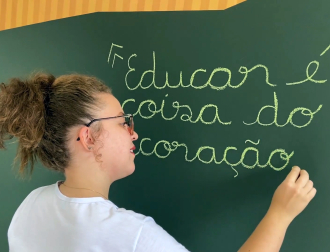 "Educar é
coisa do
coração